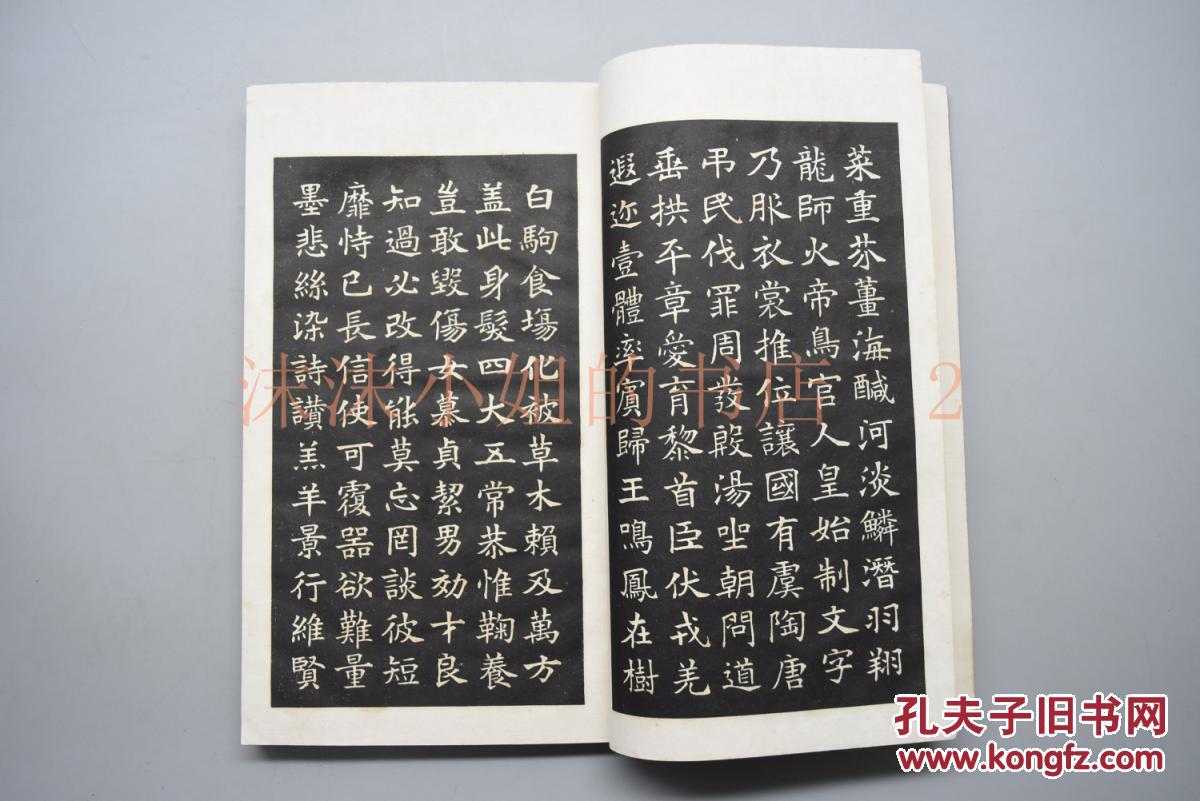 菜重芥薑海醎河淡鱗潛羽翔
龍師火帝鳥官人皇始制文字
乃服衣裳推位讓國有虞陶唐
弔民伐罪周發殷湯坐朝問道
垂拱平章愛育黎首臣伏戎羌
遐迩壹體率賓歸王鳴鳳在樹
白駒食場化被草木賴及萬方
盖此身髮四大五常恭惟鞠養
豈敢毀傷女慕貞絜男効才良
知過必改得能莫忘罔談彼短
靡恃己長信使可覆器欲難量
墨悲絲染詩讃羔羊景行維賢
沫沫小姐的书店 2
孔夫子旧书网
www.kongfz.com